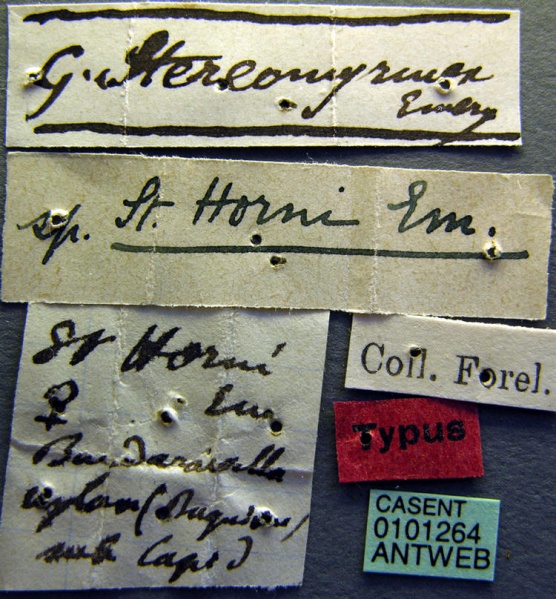 G. Stereomyrmex
Emery
sp. St. Horni Em.
St Horni
☿ Em.
Bandarawella
Ceylon (Bugnion)
Coll. Forel.
Typus
CASENT
0101264
ANTWEB